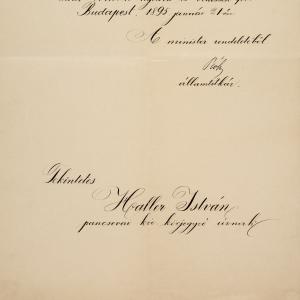 Budapest, 1895 január 21én
A minister rendeletéből
államtitkár.
Tekintetes
Haller István
pancsovai kir. közjegyző úrnak